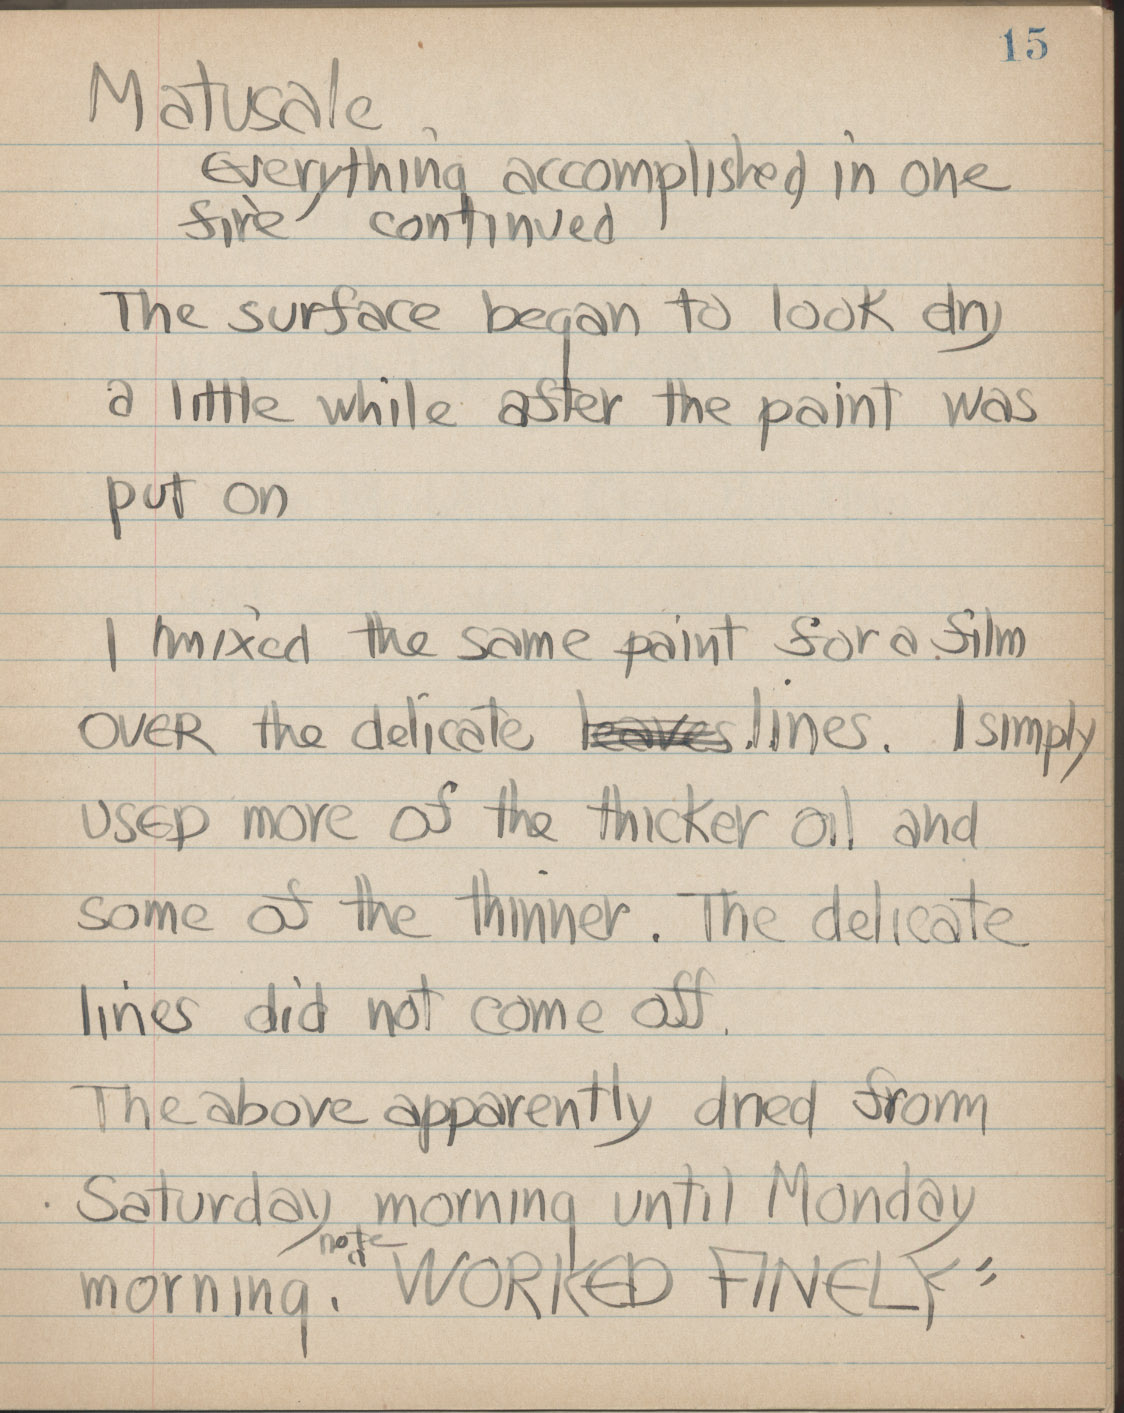 15
Matusale
Everything accomplished in one
fire continued
The surface began to look dry
a little while after the paint was
put on
I mixed the same paint for a film
OVER the delicate leaves lines. I simply
USED more of the thicker oil and
some of the thinner. The delicate
lines did not come off.
The above apparently dried from
Saturday morning until Monday
note
morning. "WORKED FINELY"